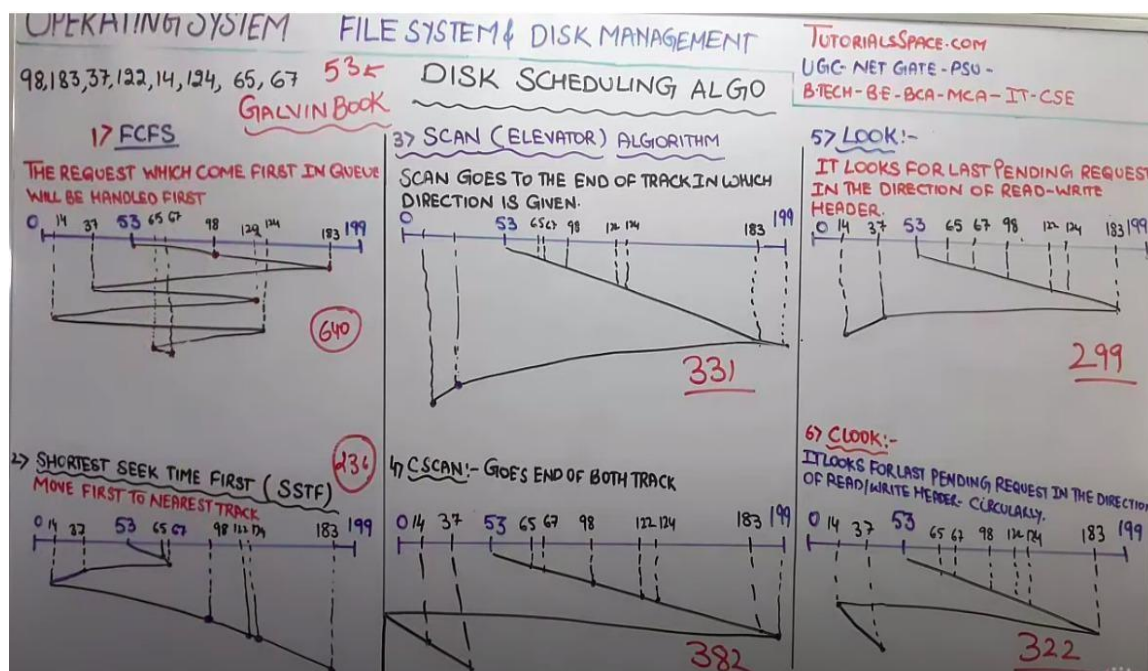 OPERATING SYSTEM FILE SYSTEM & DISK MANAGEMENT
TUTORIALSSPACE.COM
UGC-NET GATE-PSU-
B.TECH-BE-BCA-MCA-IT-CSE
98,183,37,122,14,124, 65, 67 53
DISK SCHEDULING ALGO
GALVIN BOOK
1) FCFS
THE REQUEST WHICH COME FIRST IN QUEUE
WILL BE HANDLED FIRST
0 14 37 53 65 67 98 122 124 183 199
640
2) SHORTEST SEEK TIME FIRST (SSTF)
236
MOVE FIRST TO NEAREST TRACK
0 14 37 53 65 67 98 122 124 183 199
3) SCAN (ELEVATOR) ALGORITHM
SCAN GOES TO THE END OF TRACK IN WHICH
DIRECTION IS GIVEN.
0 53 65 67 98 122 124 183 199
331
4) CSCAN:- GOES END OF BOTH TRACK
0 14 37 53 65 67 98 122 124 183 199
382
5) LOOK:-
IT LOOKS FOR LAST PENDING REQUEST
IN THE DIRECTION OF READ-WRITE
HEADER.
0 14 37 53 65 67 98 122 124 183 199
299
6) CLOOK:-
IT LOOKS FOR LAST PENDING REQUEST IN THE DIRECTION
OF READ/WRITE HEADER- CIRCULARLY.
0 14 37 53 65 67 98 122 124 183 199
322